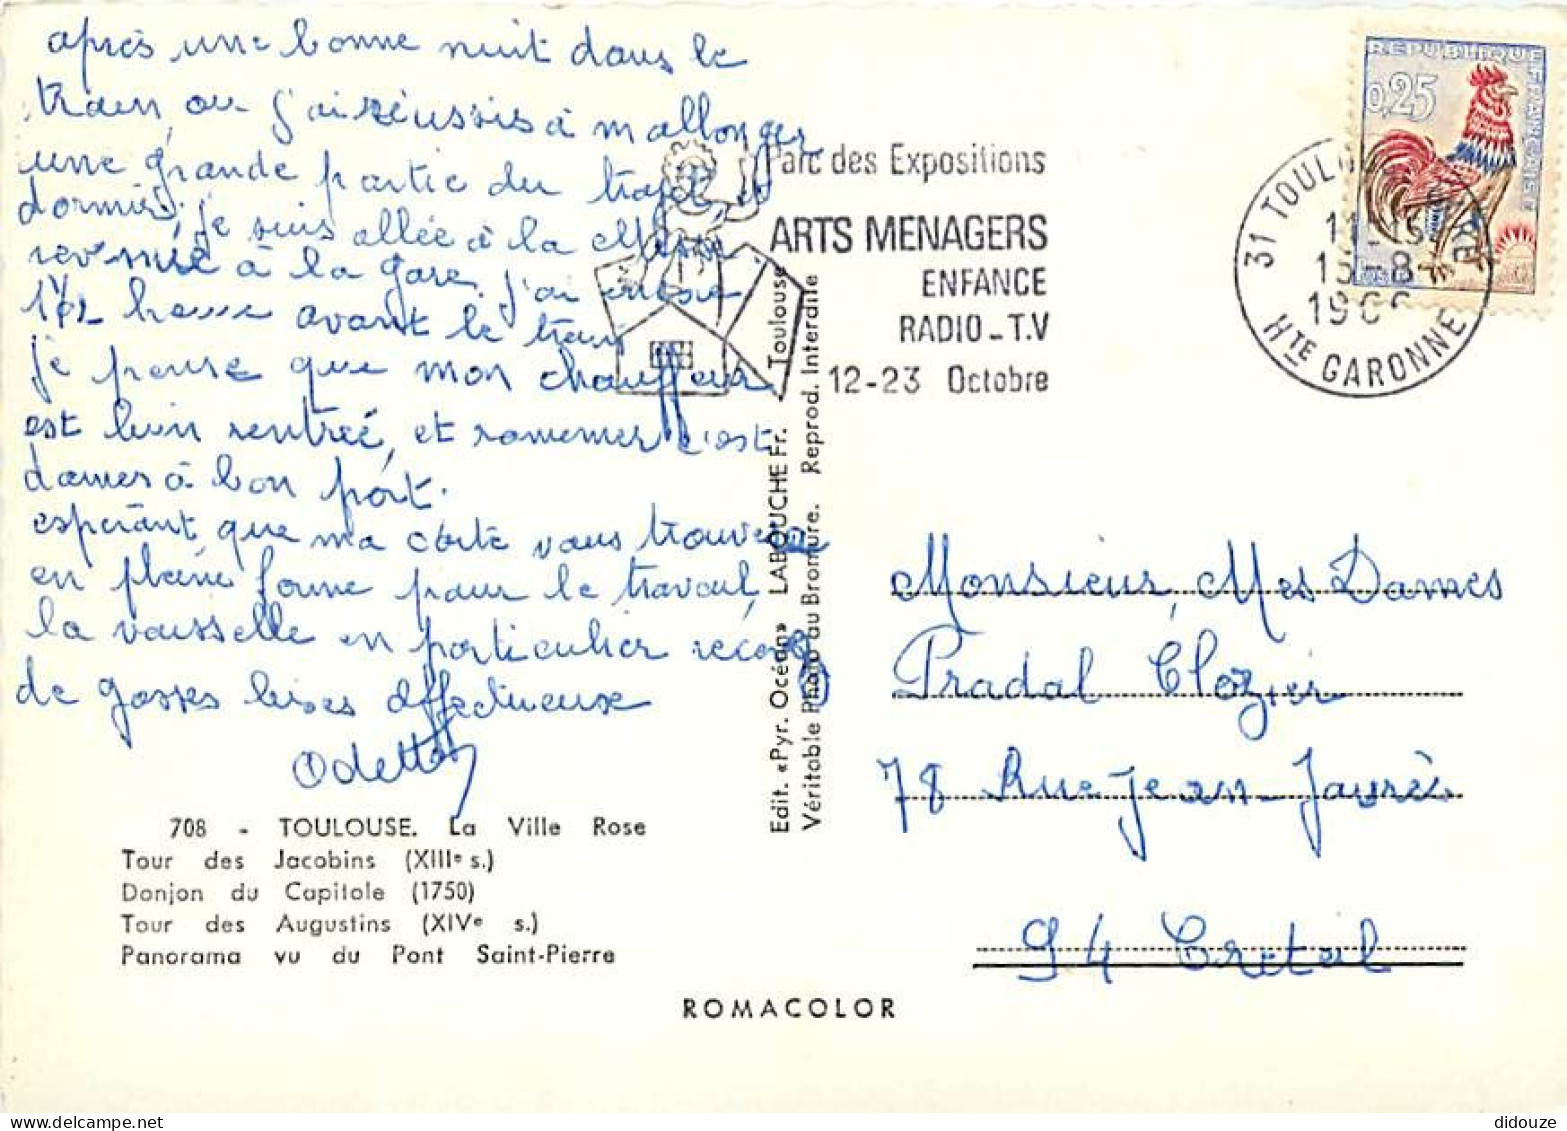 après une bonne nuit dans le
train, ou j'ai réussis à m allonger
une grande partie du trajet, et
dormir, je suis allée à la Messe
revenue à la gare j'ai encore
1h1/2 avant le train
je pense que mon chauffeur
est bien rentré, et ramener c'est
dames à bon port.
espérant que ma carte vous trouvera
en pleine forme pour le travail,
la vaisselle en particulier recevez
de gosses bises affectueuse
Odette
708 - TOULOUSE. La Ville Rose
Tour des Jacobins (XIIIe s.)
Donjon du Capitole (1750)
Tour des Augustins (XIVe s.)
Panorama vu du Pont Saint-Pierre
ROMACOLOR
Edit. «Pyr. Océan» LABOUCHE Fr. - Toulouse
Véritable Photo au Bromure. Reprod. Interdite
Parc des Expositions
ARTS MENAGERS
ENFANCE
RADIO - T.V
12-23 Octobre
REPUBLIQUE FRANÇAISE
0,25
31 TOULOUSE
Hte GARONNE
Monsieur, Mes Dames
Pradal Clozier
78 Rue Jean-Jaurès
94 Creteil
didouze